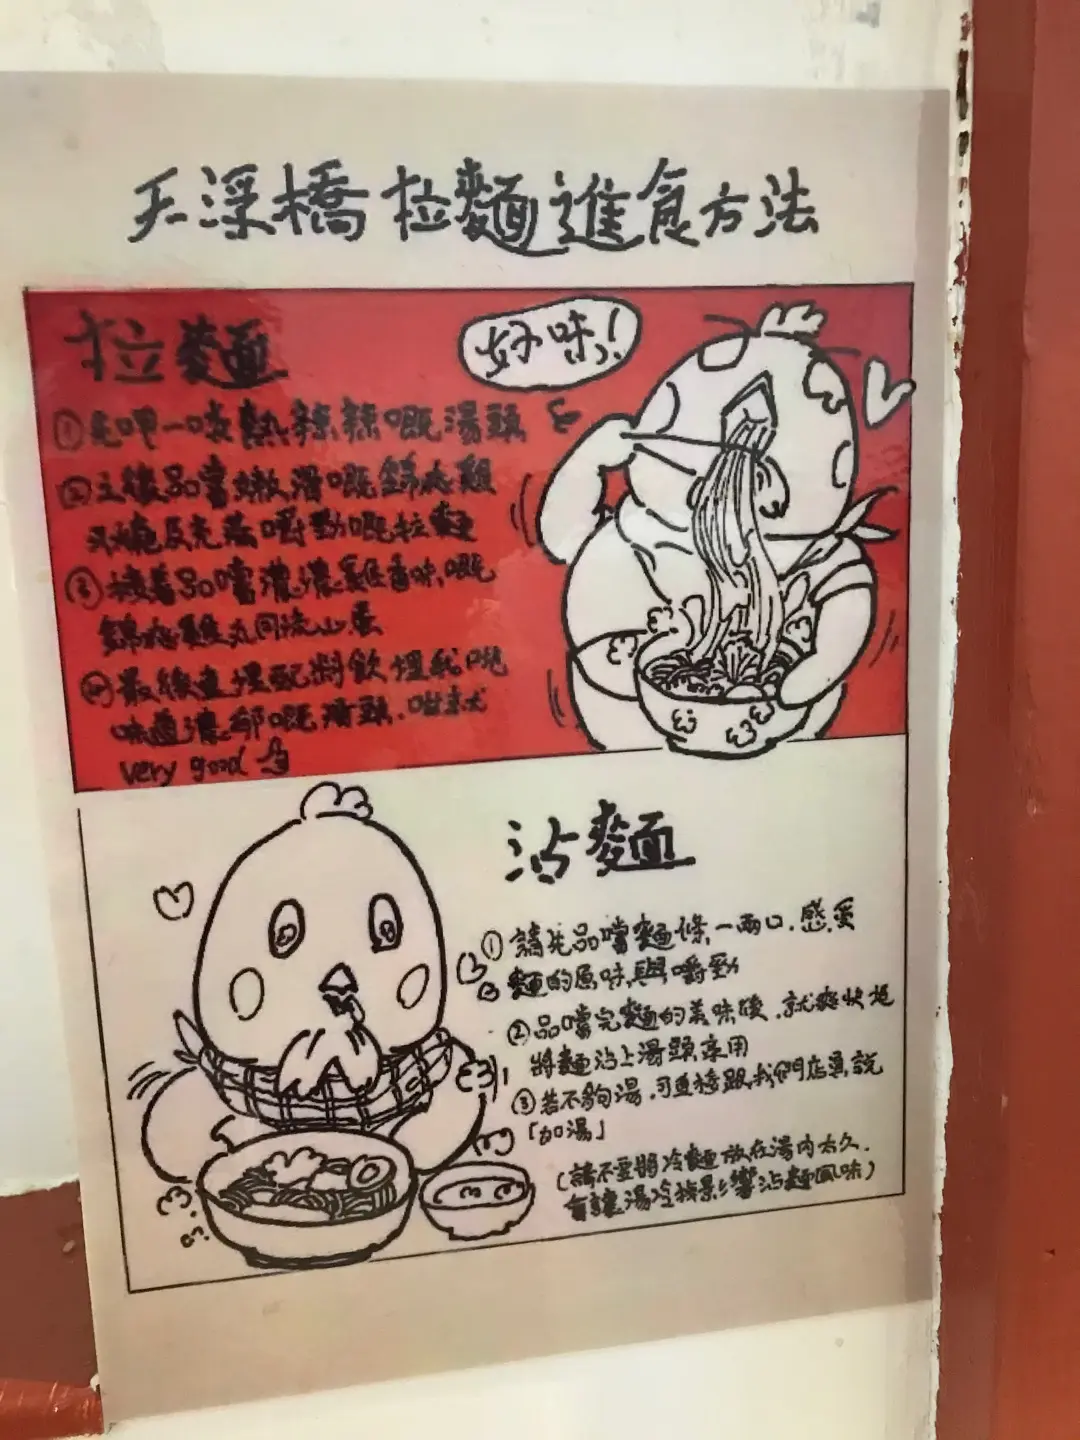 天深橋 拉麵進食方法
拉麵
好味!
①先呷一啖熱辣辣嘅湯頭
②之後品嚐嫩滑嘅錦爽雞
叉燒及充滿嚼勁嘅拉麵
③接著品嚐濃濃雞香味嘅
錦爽雞丸同流心蛋
④最後連埋配料飲埋我哋
味道濃郁嘅湯頭.咁就
very good
沾麵
①請先品嚐麵條一兩口.感受
麵的原味與嚼勁
②品嚐完麵的美味後.就爽快地
將麵沾上湯頭享用
③若不夠湯.可直接跟我們店員說
「加湯」
(請不要將冷麵放在湯內太久.
會讓湯冷掉影響沾麵風味)